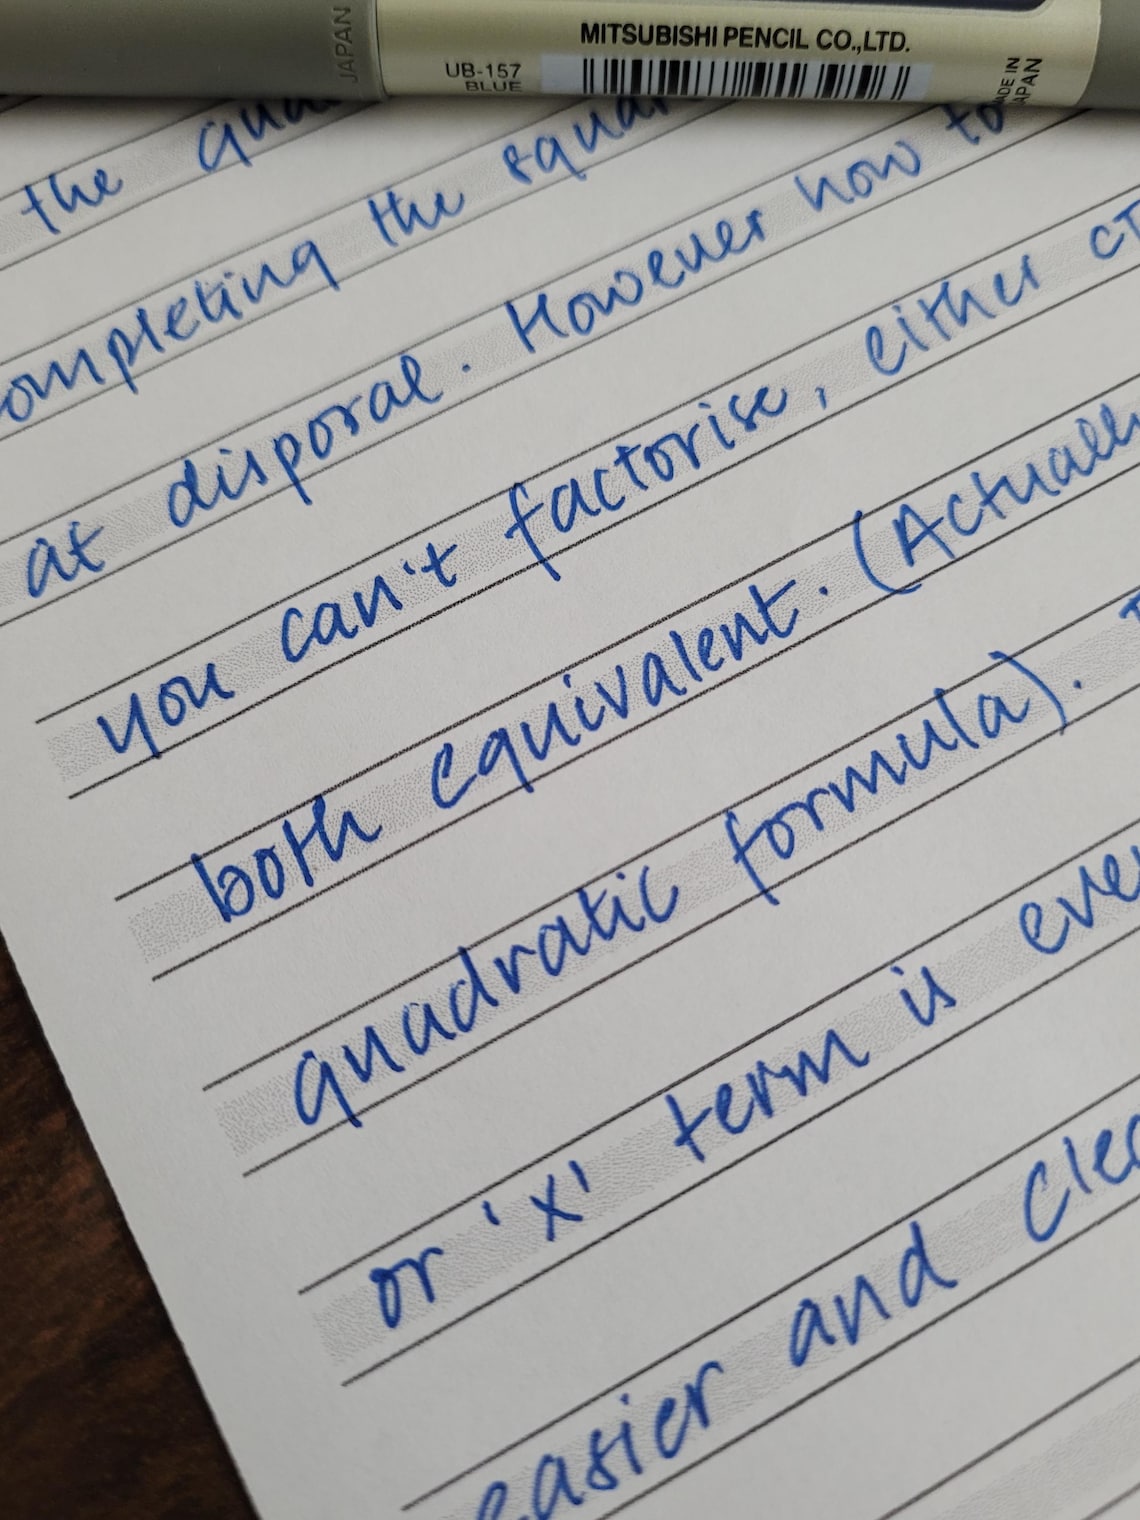 JAPAN
MITSUBISHI PENCIL CO.,LTD.
UB-157
BLUE
MADE IN
JAPAN
the
completing the
at disposal. However how to
you can't factorise, either
both equivalent. (Actually
quadratic formula).
or 'x' term is
easier and